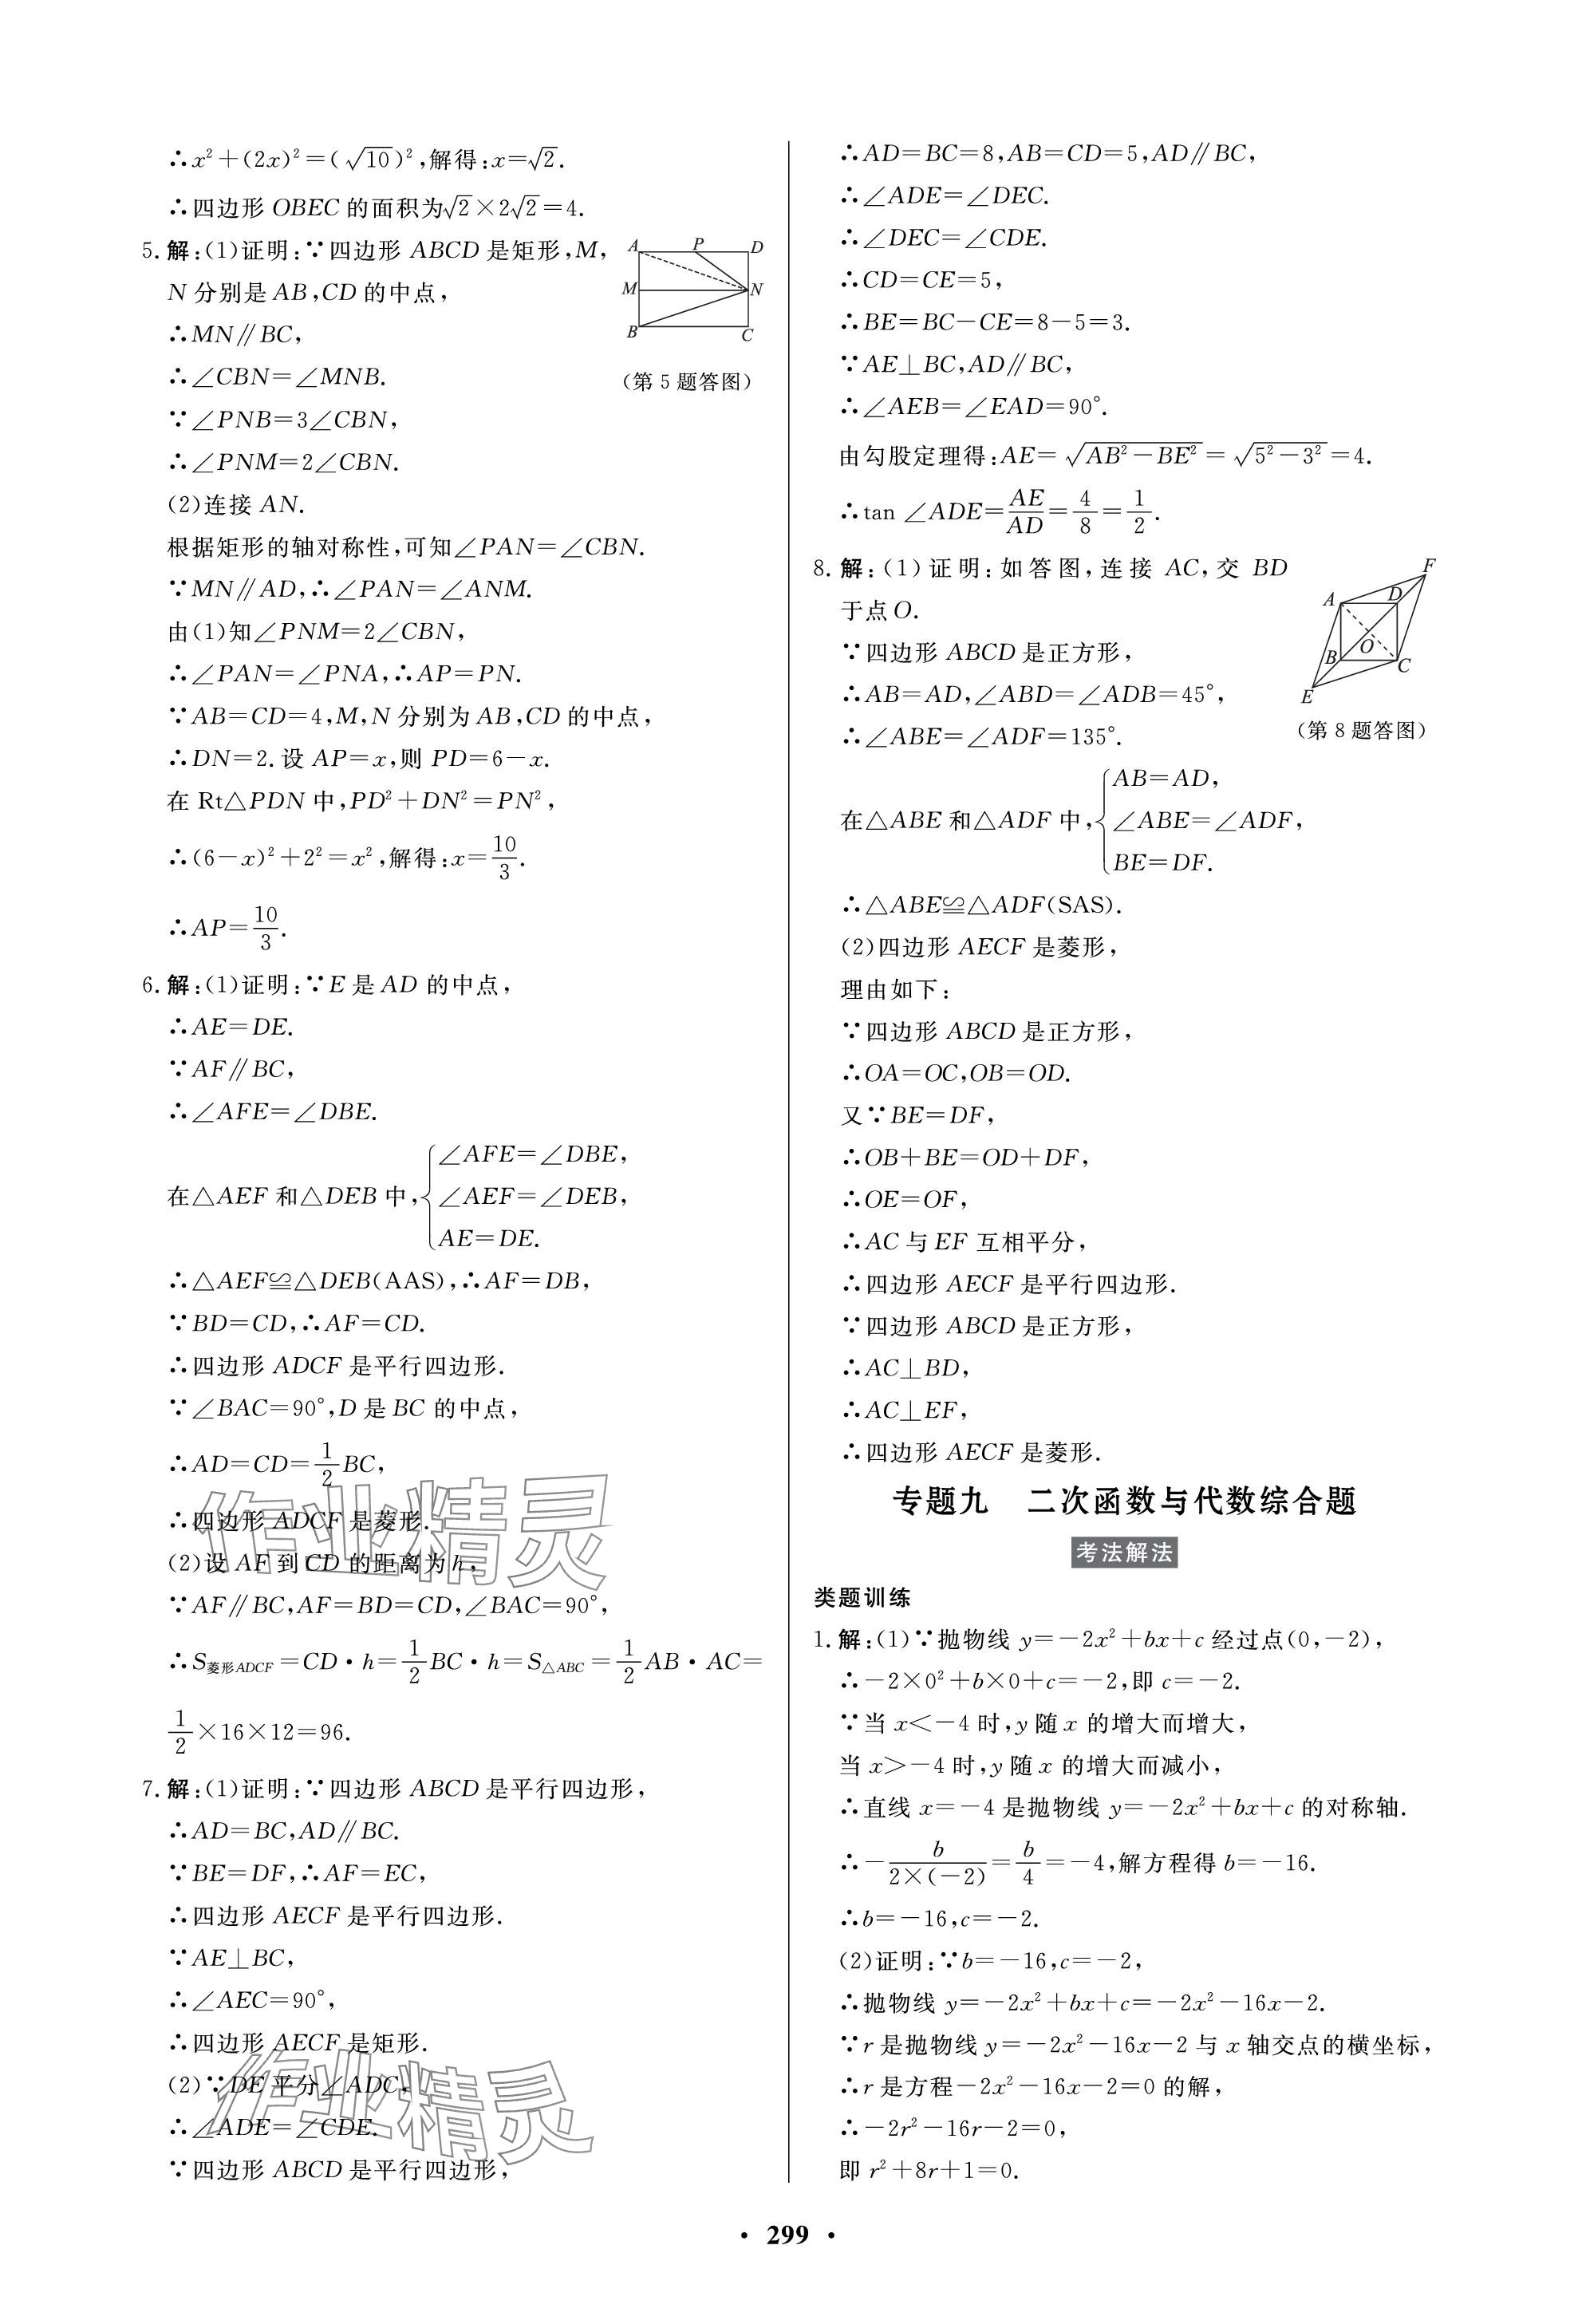 ∴x²+(2x)²=(√10)²,解得:x=√2.
∴四边形 OBEC 的面积为√2×2√2=4.
5. 解:(1)证明:∵四边形 ABCD 是矩形,M,
N 分别是 AB,CD 的中点,
∴MN∥BC,
∴∠CBN=∠MNB.
∵∠PNB=3∠CBN,
∴∠PNM=2∠CBN.
A P D
M N
B C
(第 5 题答图)
(2)连接 AN.
根据矩形的轴对称性,可知∠PAN=∠CBN.
∵MN∥AD,∴∠PAN=∠ANM.
由(1)知∠PNM=2∠CBN,
∴∠PAN=∠PNA,∴AP=PN.
∵AB=CD=4,M,N 分别为 AB,CD 的中点,
∴DN=2.设 AP=x,则 PD=6-x.
在 Rt△PDN 中,PD²+DN²=PN²,
∴(6-x)²+2²=x²,解得:x=10/3.
∴AP=10/3.
6. 解:(1)证明:∵E 是 AD 的中点,
∴AE=DE.
∵AF∥BC,
∴∠AFE=∠DBE.
在△AEF 和△DEB 中,{∠AFE=∠DBE,
∠AEF=∠DEB,
AE=DE.
∴△AEF≌△DEB(AAS),∴AF=DB,
∵BD=CD,∴AF=CD.
∴四边形 ADCF 是平行四边形.
∵∠BAC=90°,D 是 BC 的中点,
∴AD=CD=1/2BC,
∴四边形 ADCF 是菱形.
(2)设 AF 到 CD 的距离为 h,
∵AF∥BC,AF=BD=CD,∠BAC=90°,
∴S菱形ADCF=CD·h=1/2BC·h=S△ABC=1/2AB·AC=
1/2×16×12=96.
7. 解:(1)证明:∵四边形 ABCD 是平行四边形,
∴AD=BC,AD∥BC.
∵BE=DF,∴AF=EC,
∴四边形 AECF 是平行四边形.
∵AE⊥BC,
∴∠AEC=90°,
∴四边形 AECF 是矩形.
(2)∵DE 平分∠ADC,
∴∠ADE=∠CDE.
∵四边形 ABCD 是平行四边形,
作业精灵
作业精灵
∴AD=BC=8,AB=CD=5,AD∥BC,
∴∠ADE=∠DEC.
∴∠DEC=∠CDE.
∴CD=CE=5,
∴BE=BC-CE=8-5=3.
∵AE⊥BC,AD∥BC,
∴∠AEB=∠EAD=90°.
由勾股定理得:AE=√(AB²-BE²)=√(5²-3²)=4.
∴tan ∠ADE=AE/AD=4/8=1/2.
8. 解:(1)证明:如答图,连接 AC,交 BD
于点 O.
∵四边形 ABCD 是正方形,
∴AB=AD,∠ABD=∠ADB=45°,
∴∠ABE=∠ADF=135°.
F
A D
O
B C
E
(第 8 题答图)
在△ABE 和△ADF 中,{AB=AD,
∠ABE=∠ADF,
BE=DF.
∴△ABE≌△ADF(SAS).
(2)四边形 AECF 是菱形,
理由如下:
∵四边形 ABCD 是正方形,
∴OA=OC,OB=OD.
又∵BE=DF,
∴OB+BE=OD+DF,
∴OE=OF,
∴AC 与 EF 互相平分,
∴四边形 AECF 是平行四边形.
∵四边形 ABCD 是正方形,
∴AC⊥BD,
∴AC⊥EF,
∴四边形 AECF 是菱形.
专题九 二次函数与代数综合题
考法解法
类题训练
1. 解:(1)∵抛物线 y=-2x²+bx+c 经过点(0,-2),
∴-2×0²+b×0+c=-2,即 c=-2.
∵当 x<-4 时,y 随 x 的增大而增大,
当 x>-4 时,y 随 x 的增大而减小,
∴直线 x=-4 是抛物线 y=-2x²+bx+c 的对称轴.
∴-b/(2×(-2))=b/4=-4,解方程得 b=-16.
∴b=-16,c=-2.
(2)证明:∵b=-16,c=-2,
∴抛物线 y=-2x²+bx+c=-2x²-16x-2.
∵r 是抛物线 y=-2x²-16x-2 与 x 轴交点的横坐标,
∴r 是方程-2x²-16x-2=0 的解,
∴-2r²-16r-2=0,
即 r²+8r+1=0.
· 299 ·